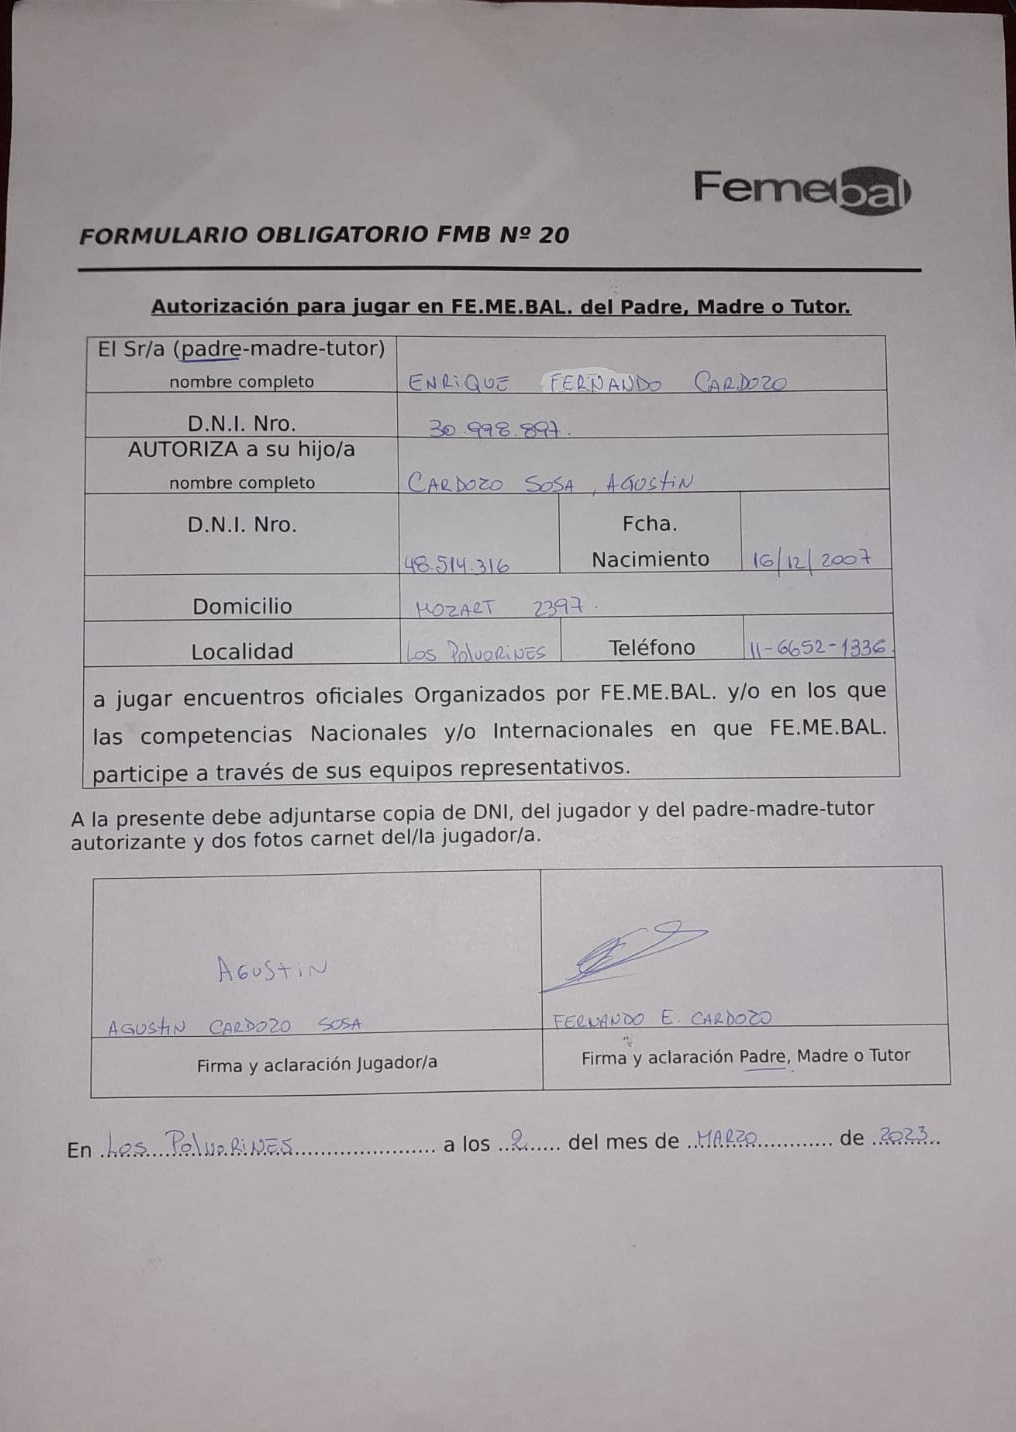 Femebal
FORMULARIO OBLIGATORIO FMB Nº 20
Autorización para jugar en FE.ME.BAL. del Padre, Madre o Tutor.
El Sr/a (padre-madre-tutor)
nombre completo ENRiQUE FERNANDO CARDOZO
D.N.I. Nro. 30.998.897.
AUTORIZA a su hijo/a
nombre completo CARDOZO SOSA, AGUStiN
D.N.I. Nro. 48.514.316 Fcha. Nacimiento 16/12/2007
Domicilio MOZART 2397.
Localidad Los PolvoRiNES Teléfono 11-6652-1336
a jugar encuentros oficiales Organizados por FE.ME.BAL. y/o en los que
las competencias Nacionales y/o Internacionales en que FE.ME.BAL.
participe a través de sus equipos representativos.
A la presente debe adjuntarse copia de DNI, del jugador y del padre-madre-tutor
autorizante y dos fotos carnet del/la jugador/a.
AGUStiN
AGUStiN CARDOZO SOSA FERNANDO E. CARDOZO
Firma y aclaración Jugador/a Firma y aclaración Padre, Madre o Tutor
En Los PolvoRiNES a los 2 del mes de MARZO de 2023